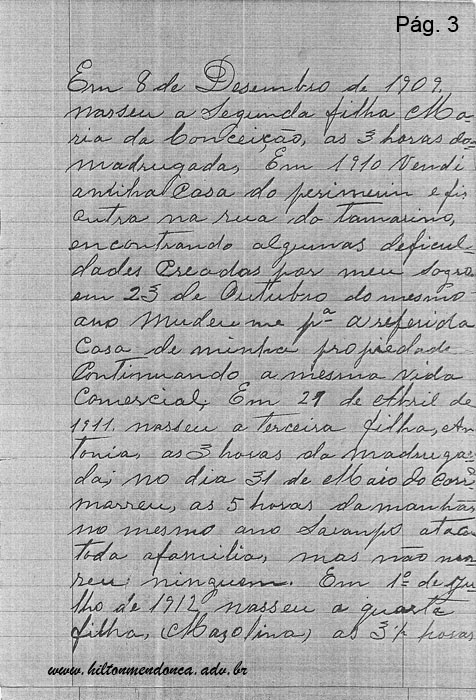 Pág. 3
Em 8 de Desembro de 1909,
nasseu a Segunda filha Ma-
ria da Conceição, as 3 horas da
madrugada, Em 1910 Vendi
antiha Casa do perimerin e fis
Outra na rua do tamarino,
encontrando algumas deficul-
dades Creadas por meu Sogro
em 23 de Outubro do mesmo
ano Mudeu me pª a referida
Casa de minha propriedade
Continuando a mesma vida
Comercial; Em 29 de Abril de
1911. nasseu a terceira filha, An
tonia, as 3 horas da madruga-
da; no dia 31 de Maio do Corre
marreu, as 5 horas da manhãs
no mesmo ano Saranpo ataca
toda afamilia, mas não mor
reu; ninguem. Em 1º de Ju
lho de 1912, nasseu a quarta
filha, (Mazolina) as 3½ horas
www.hiltonmendonca.adv.br